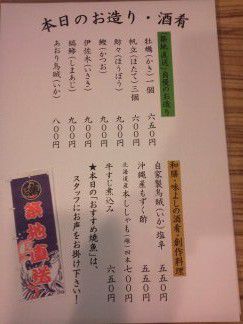 本日のお造り・酒肴
築地直送・自慢のお造り
牡蠣(かき)一個 六五〇円
帆立(ほたて)三個 六〇〇円
魴々(ほうぼう) 九〇〇円
鰹(かつお) 九〇〇円
伊佐木(いさき) 九〇〇円
縞鯵(しまあじ) 九〇〇円
あおり烏賊(いか) 八〇〇円
和膳・味よしの酒肴・創作料理
自家製烏賊(いか)塩辛 五五〇円
沖縄産もずく酢 五五〇円
北海道産本ししゃも(雌)四本 七〇〇円
牛すじ煮込み 六五〇円
★本日の「おすすめ焼魚」は、
スタッフにお声をお掛け下さい!
築地直送